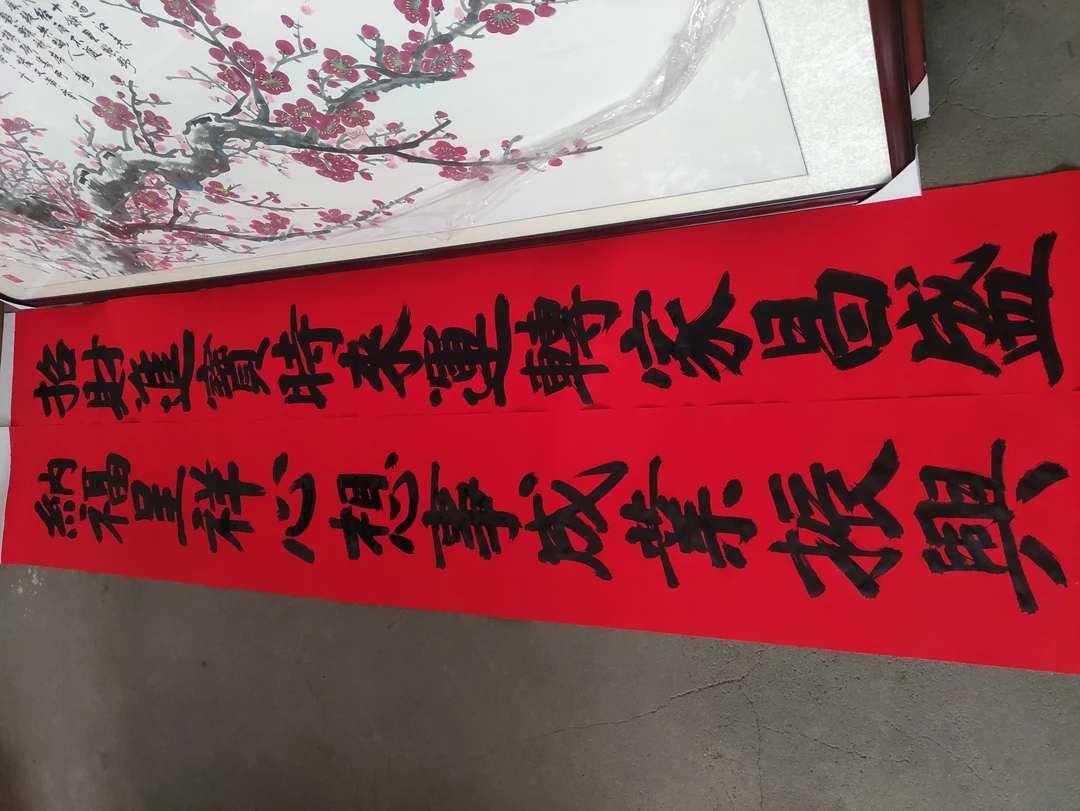 招財進寶時来運轉家昌盛
納福呈祥心想事成業振興